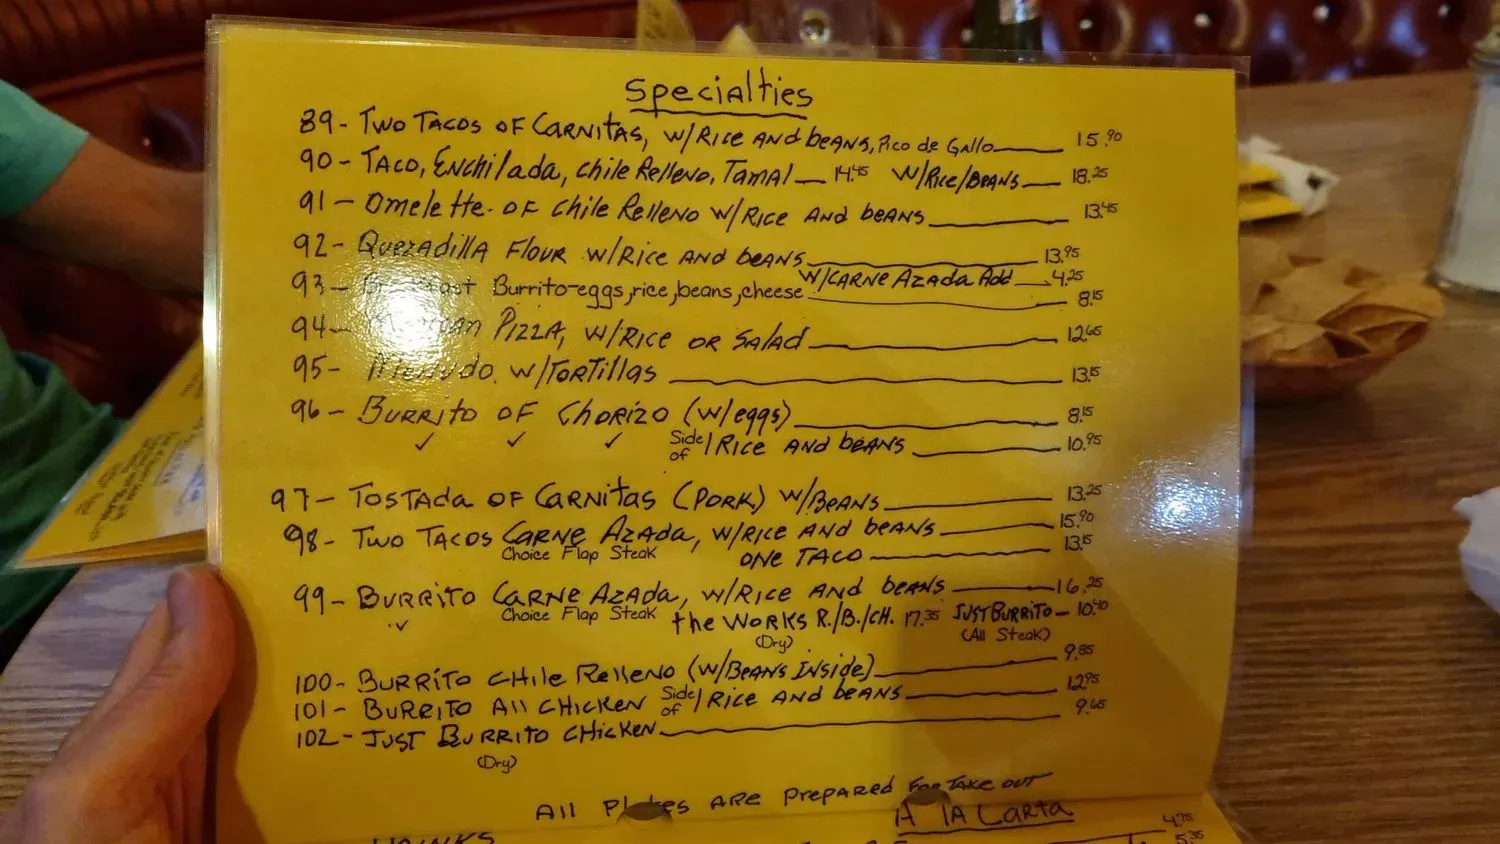 Specialties
89- Two Tacos of Carnitas, w/Rice and beans, Pico de Gallo 15.90
90- Taco, Enchilada, chile Relleno, Tamal 14.45 w/Rice/Beans 18.25
91- Omelette of Chile Relleno w/Rice and beans 13.45
92- Quezadilla Flour w/Rice and beans 13.95
w/Carne Azada Add 4.25
93- Breakfast Burrito-eggs, rice, beans, cheese 8.15
94- Mexican Pizza, w/Rice or Salad 12.65
95- Menudo, w/Tortillas 13.15
96- Burrito of Chorizo (w/eggs) 8.15
Side of / Rice and beans 10.95
97- Tostada of Carnitas (Pork) w/Beans 13.25
98- Two Tacos Carne Azada, w/Rice and beans 15.90
Choice Flap Steak one Taco 13.15
99- Burrito Carne Azada, w/Rice and beans 16.25
Choice Flap Steak the Works R./B./CH. 17.35 Just Burrito- 10.40
(Dry) (All Steak)
100- Burrito Chile Relleno (w/Beans Inside) 9.85
101- Burrito All Chicken Side of / Rice and beans 12.95
102- Just Burrito Chicken 9.65
(Dry)
All Plates are prepared For Take out
A la Carta
4.75
5.35